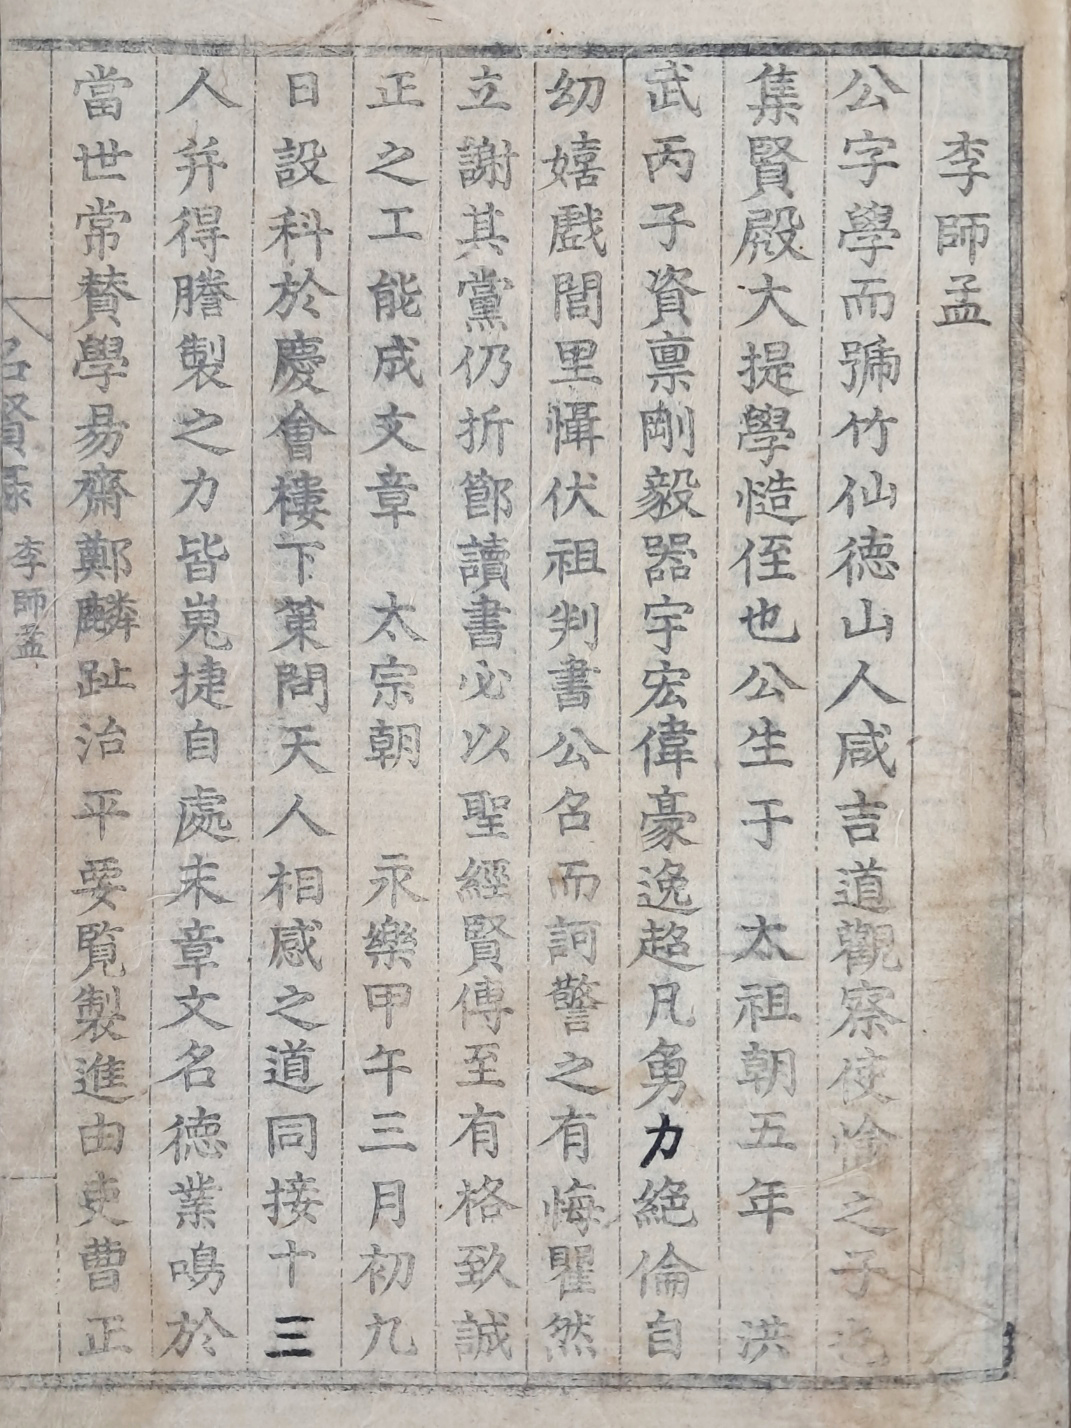 李師孟
公字學而號竹仙德山人咸吉道觀察使愉之子也
集賢殿大提學慥侄也公生于 太祖朝五年 洪
武丙子資禀剛毅器宇宏偉豪逸超凡勇力絕倫自
幼嬉戲閭里懾伏祖判書公名而訶警之有悔瞿然
立謝其黨仍折節讀書必以聖經賢傳至有格致誠
正之工能成文章 太宗朝 永樂甲午三月初九
日設科於慶會樓下策問天人相感之道同接十三
人并得謄製之力皆嵬捷自處末章文名德業鳴於
當世常贊學易齋鄭麟趾治平要覽製進由吏曹正
名賢錄 李師孟